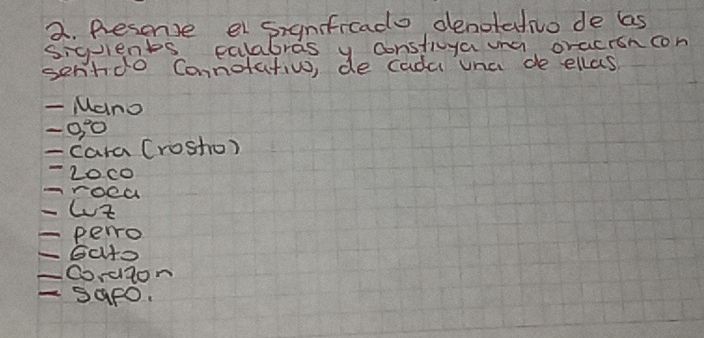 2. Presente el significado denotativo de las
siguientes palabras y construya una oración con
sentido Connotativo, de cada una de ellas.
- Mano
- ojo
- cara (rostro)
- Loco
- roca
- luz
- perro
- Gato
- Corazon
- sapo.